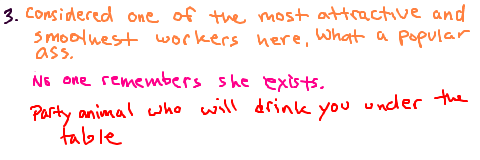 3. Considered one of the most attractive and
smoothest workers here, What a popular
ass.
No one remembers she exists.
Party animal who will drink you under the
table